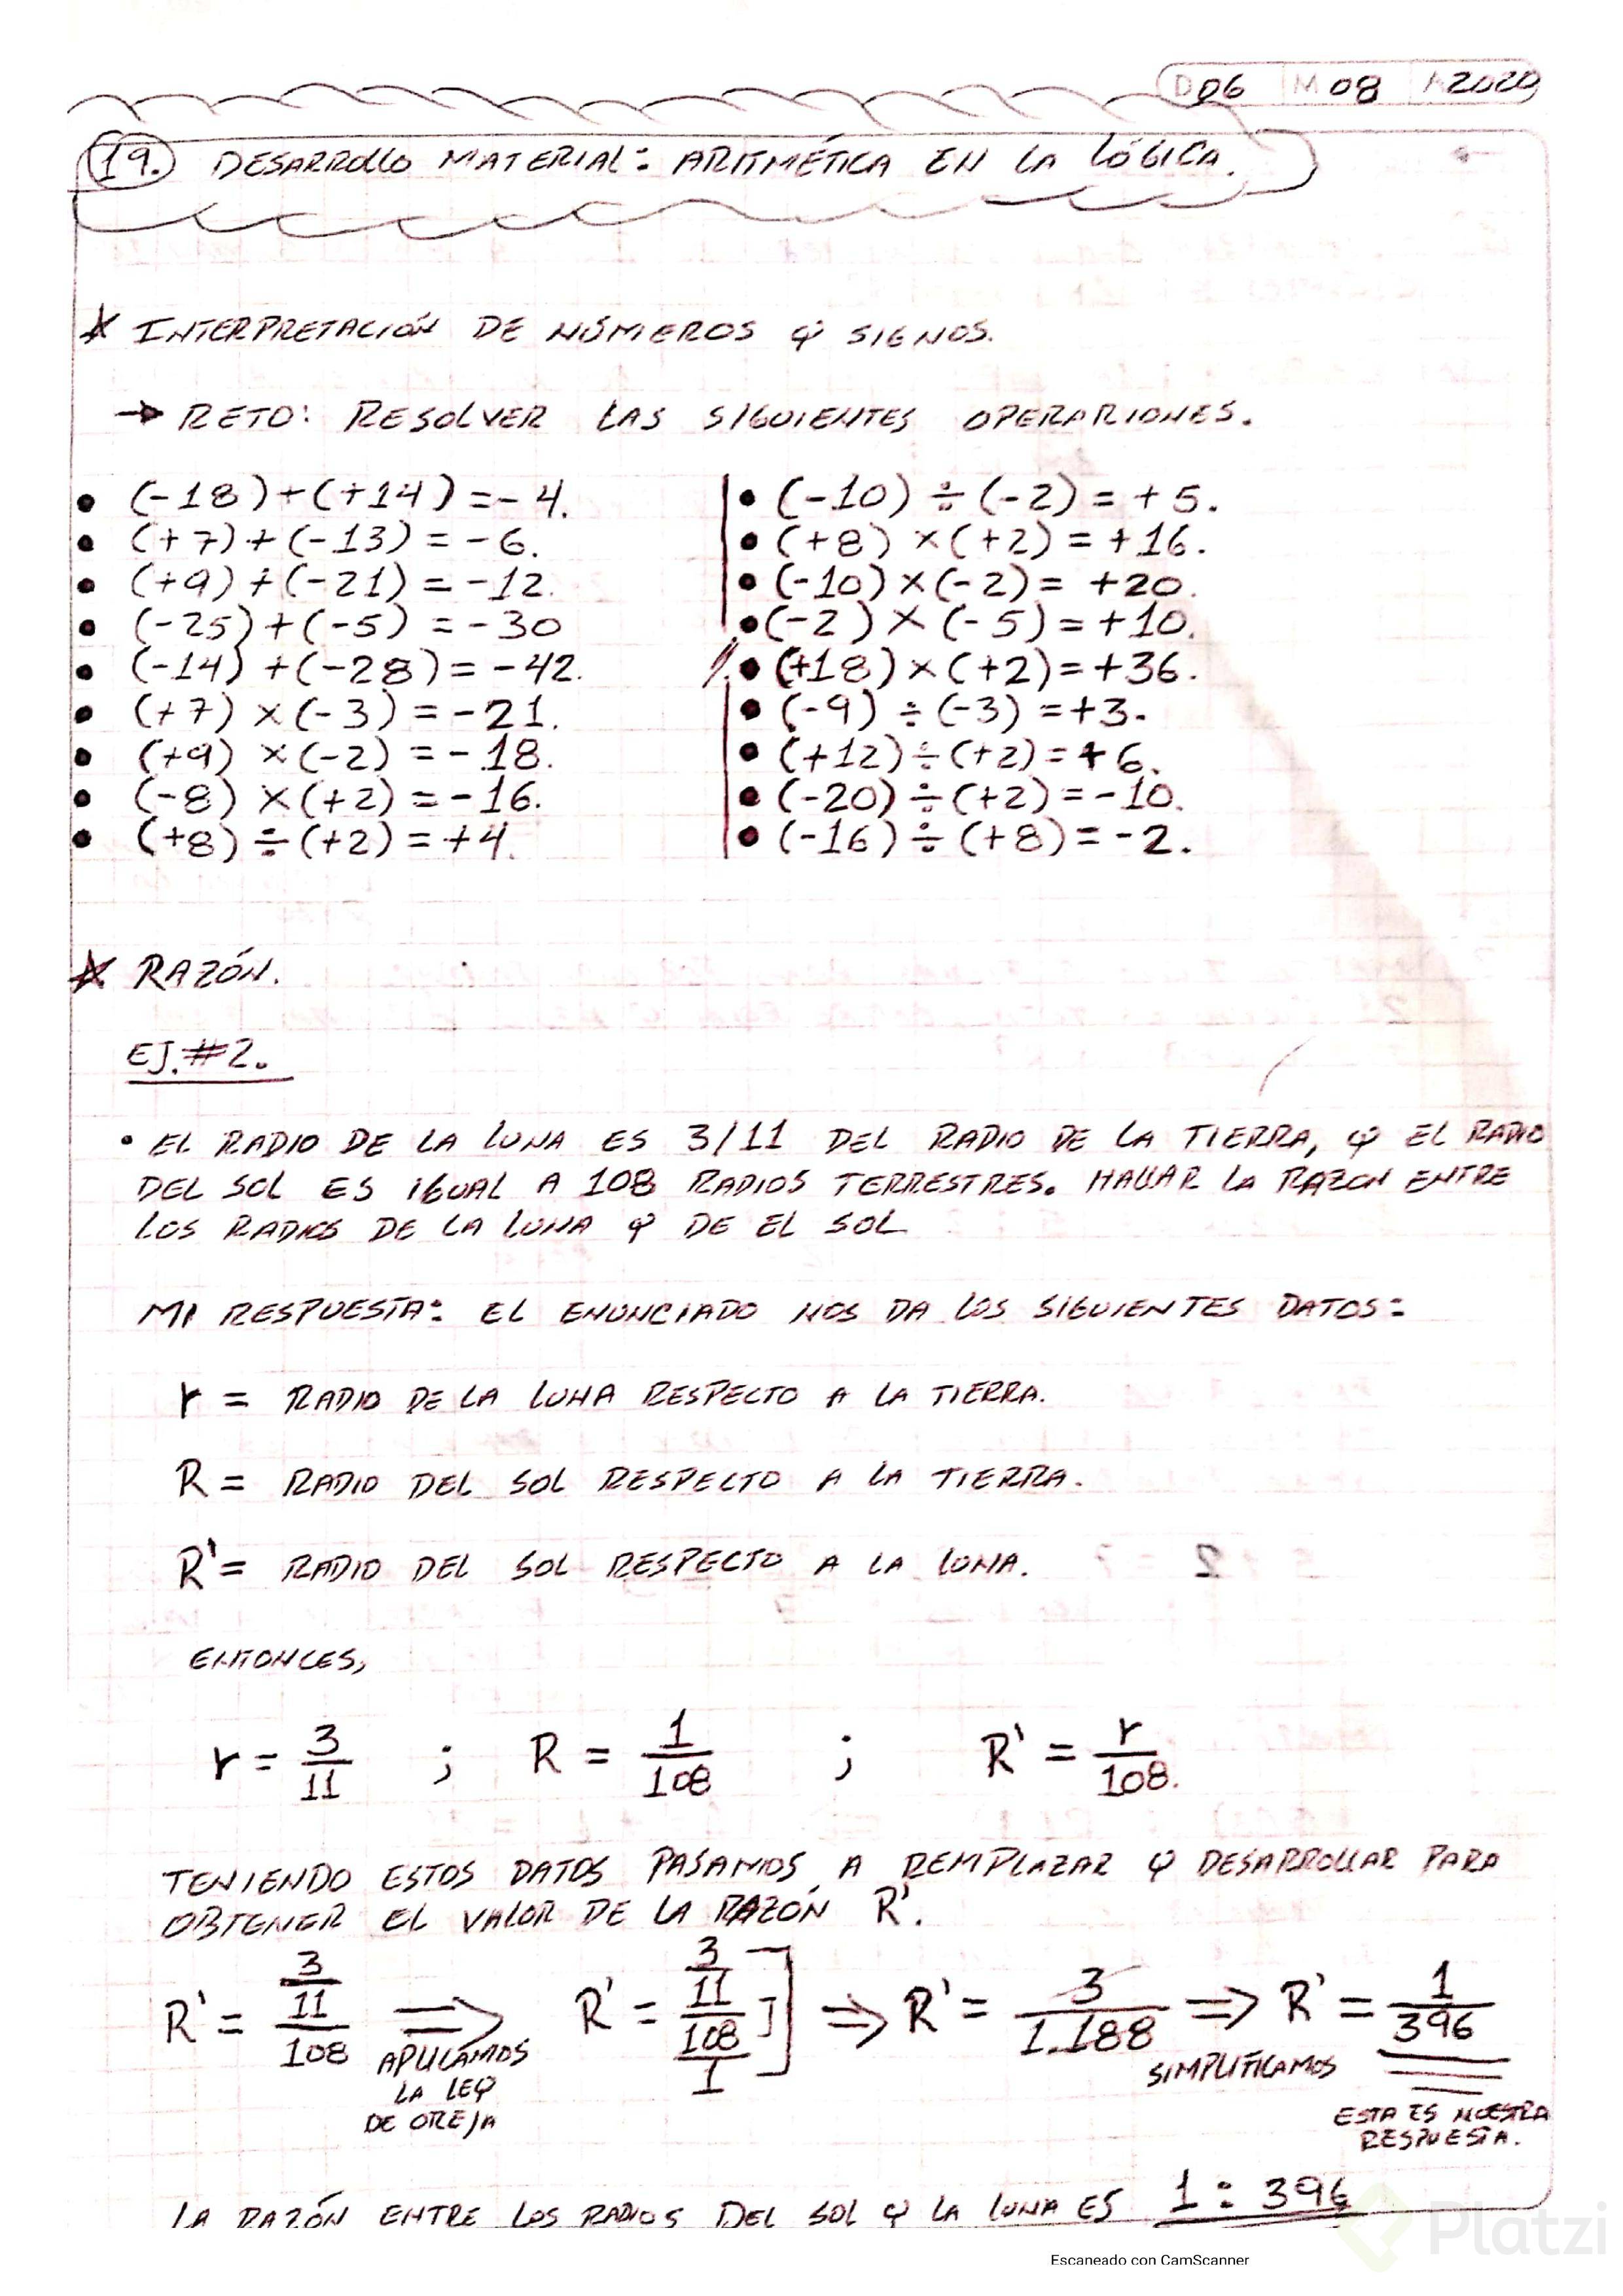 D 06 M 08 A 2020
19. DESARROLLO MATERIAL: ARITMÉTICA EN LA LÓGICA.
* INTERPRETACIÓN DE NÚMEROS Y SIGNOS.
→ RETO: RESOLVER LAS SIGUIENTES OPERARIONES.
• (-18)+(+14)=-4.
• (+7)+(-13)=-6.
• (+9)+(-21)=-12.
• (-25)+(-5)=-30
• (-14)+(-28)=-42.
• (+7)×(-3)=-21.
• (+9)×(-2)=-18.
• (-8)×(+2)=-16.
• (+8)÷(+2)=+4.
• (-10)÷(-2)=+5.
• (+8)×(+2)=+16.
• (-10)×(-2)=+20.
• (-2)×(-5)=+10.
• (+18)×(+2)=+36.
• (-9)÷(-3)=+3.
• (+12)÷(+2)=+6.
• (-20)÷(+2)=-10.
• (-16)÷(+8)=-2.
* RAZÓN.
EJ.#2.
• EL RADIO DE LA LUNA ES 3/11 DEL RADIO DE LA TIERRA, Y EL RADIO
DEL SOL ES IGUAL A 108 RADIOS TERRESTRES. HALLAR LA RAZON ENTRE
LOS RADIOS DE LA LUNA Y DE EL SOL
MI RESPUESTA: EL ENUNCIADO NOS DA LOS SIGUIENTES DATOS:
r = RADIO DE LA LUNA RESPECTO A LA TIERRA.
R = RADIO DEL SOL RESPECTO A LA TIERRA.
R' = RADIO DEL SOL RESPECTO A LA LUNA.
ENTONCES,
r = 3/11 ; R = 1/108 ; R' = r/108.
TENIENDO ESTOS DATOS PASAMOS A REMPLAZAR Y DESARROLLAR PARA
OBTENER EL VALOR DE LA RAZÓN R'.
R' = (3/11)/108 ⇒ R' = (3/11)/(108/1) ⇒ R' = 3/1.188 ⇒ R' = 1/396
APLICAMOS
LA LEY
DE OREJA
SIMPLIFICAMOS
ESTA ES NUESTRA
RESPUESTA.
LA RAZÓN ENTRE LOS RADIOS DEL SOL Y LA LUNA ES 1:396
Platzi
Escaneado con CamScanner